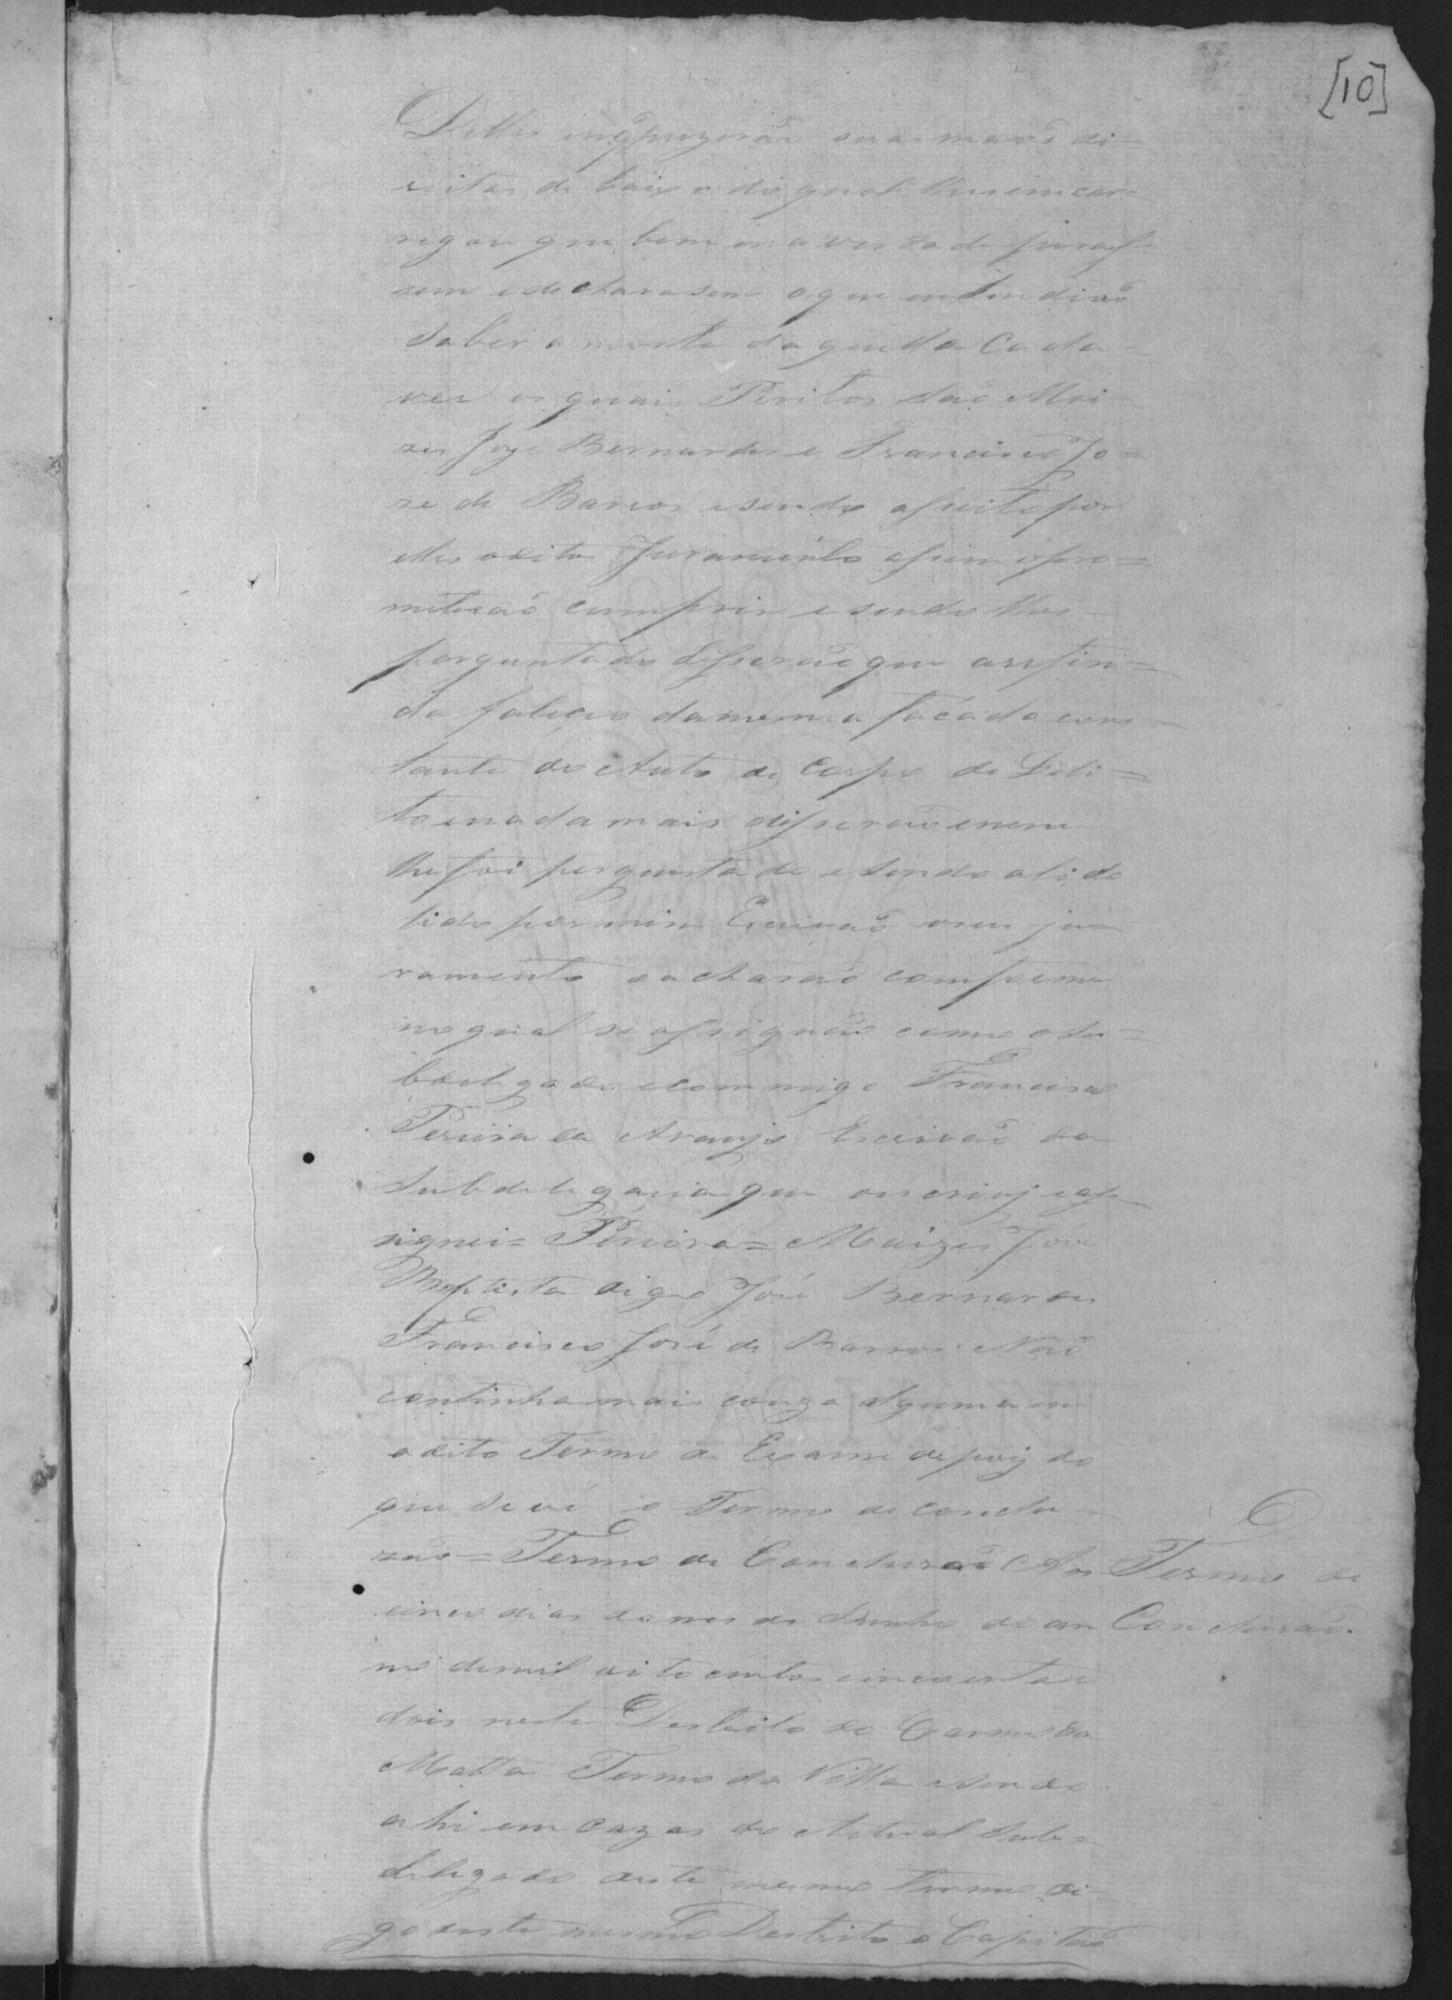 [10]
Delles emq puzerão suas maos di-
reitas de baixo do qual lhes emcar-
regou que bem ena verda de juraf-
sem edeclarasem oque entendiaõ
sober a morte da quella Cada-
ver os quais Peritos são Moi-
zes Joze Bernardes e Francisco Jo-
ze de Barros esendo aseito por
elles odito Juramento afsim opro-
meteraõ cumprir e sendo lhes
perguntado difseraõ que
da faleceo damesma facáda cons-
tante do Auto de Corpo de Deli-
to enada mais difseraõ enem
lhe foi perguntado e sendo
lido por mim Escrivaõ oseu ju-
ramento oacharaõ comforme
no qual se afsignaõ como oSu-
bdelegado ecommigo Francisco
Pereira de Araujo Escrivaõ da
Subdelegacia que oescrivj eaf-
signei = Pereira = Moizes José
Baptista digo José Bernardes
Francisco José de Barros. Naõ
continha mais couza alguma em
odito Termo de Exame depoij do
que se vê o Termo de conclu-
zaõ = Termo de Concluzaõ Aos
Termo de
Concluzaõ.
cinco dias do mes de Junho do an
no demil oito centos cincoenta e
dois neste Destrito do Carmo da
Matta Termo da Villa
ahi em cazas do Actual Sub=
delegado deste mesmo Termo di-
go deste mesmo Destrito o Capitaõ